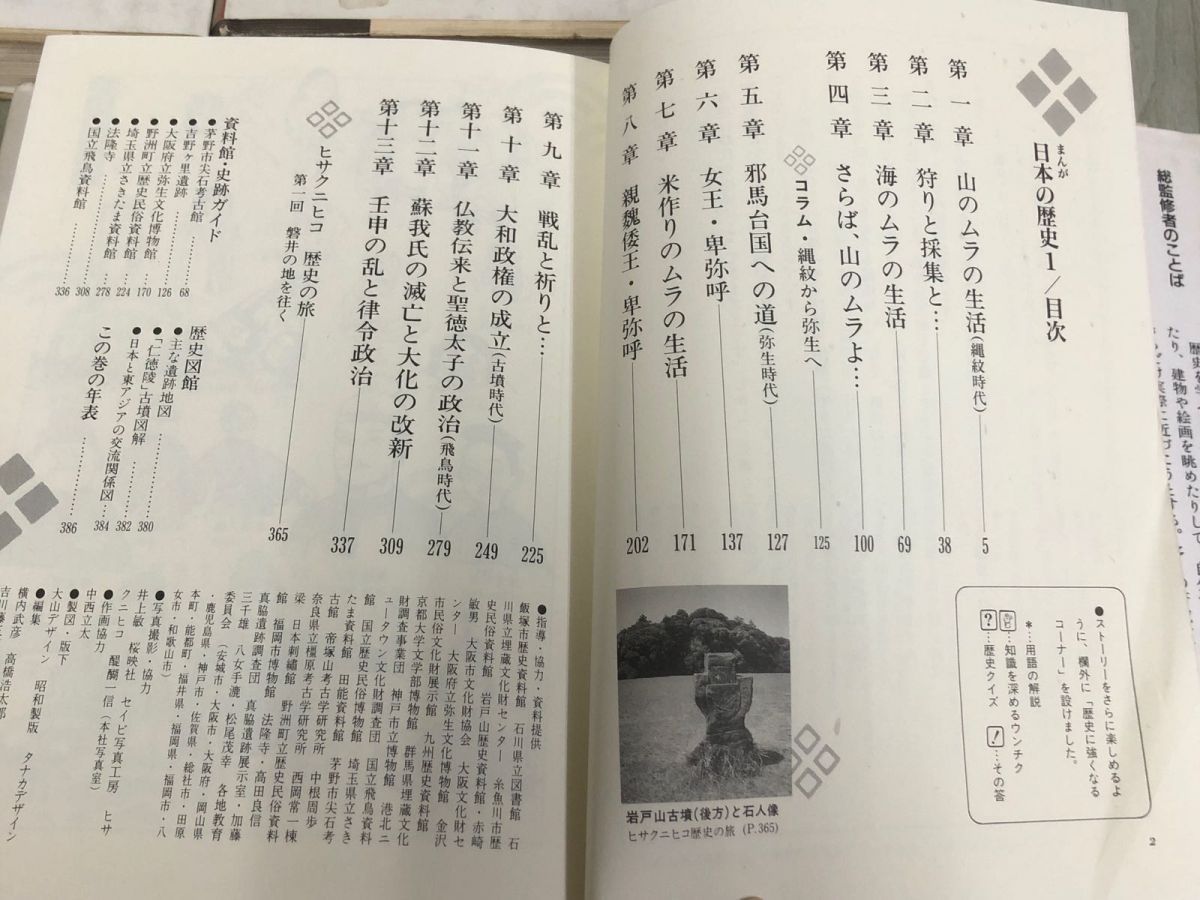 まんが
日本の歴史1/目次
第一章 山のムラの生活(縄紋時代) 5
第二章 狩りと採集と… 38
第三章 海のムラの生活 69
第四章 さらば、山のムラよ… 100
コラム・縄紋から弥生へ 125
第五章 邪馬台国への道(弥生時代) 127
第六章 女王・卑弥呼 137
第七章 米作りのムラの生活 171
第八章 親魏倭王・卑弥呼 202
●ストーリーをさらに楽しめるよ
うに、欄外に「歴史に強くなる
コーナー」を設けました。
*…用語の解説
…知識を深めるウンチク
?…歴史クイズ !…その答
岩戸山古墳(後方)と石人像
ヒサクニヒコ歴史の旅 (P.365)
2
第九章 戦乱と祈りと… 225
第十章 大和政権の成立(古墳時代) 249
第十一章 仏教伝来と聖徳太子の政治(飛鳥時代) 279
第十二章 蘇我氏の滅亡と大化の改新 309
第十三章 壬申の乱と律令政治 337
ヒサクニヒコ 歴史の旅
第一回 磐井の地を往く 365
資料館・史跡ガイド
●茅野市尖石考古館 68
●吉野ヶ里遺跡 126
●大阪府立弥生文化博物館 170
●野洲町立歴史民俗資料館 224
●埼玉県立さきたま資料館 278
●法隆寺 308
●国立飛鳥資料館 336
歴史図館
●主な遺跡地図 380
●「仁徳陵」古墳図解 382
●日本と東アジアの交流関係図 384
この巻の年表 386
●指導・協力・資料提供
飯塚市歴史資料館 石川県立図書館 石
川県立埋蔵文化財センター 糸魚川市歴
史民俗資料館 岩戸山歴史資料館・赤崎
敏男 大阪市文化財協会 大阪文化財セ
ンター 大阪府立弥生文化博物館 金沢
市民俗文化財展示館 九州歴史資料館
京都大学文学部博物館 群馬県埋蔵文化
財調査事業団 神戸市立博物館 港北ニ
ュータウン文化財調査団 国立飛鳥資料
館 国立歴史民俗博物館 埼玉県立さき
たま資料館 田能資料館 茅野市尖石考
古館 帝塚山考古学研究所 中根周歩
奈良県立橿原考古学研究所 西岡常一棟
梁 日本刺繡館 野洲町立歴史民俗資料
館 福岡市博物館 法隆寺・高田良信
真脇遺跡調査団 真脇遺跡展示室・加藤
三千雄 八女手漉・松尾茂幸 各地教育
委員会(安城市・大阪市・大阪府・岡山県
・鹿児島県・神戸市・佐賀県・総社市・田原
本町・能都町・福井県・福岡県・福岡市・八
女市・和歌山市)
●写真撮影・協力
井上敏 桜映社 セイビ写真工房 ヒサ
クニヒコ 醍醐一信(本社写真室)
●作画協力
中西立太
●製図・版下
大山デザイン 昭和製版 タナカデザイン
●編集
横内武彦 高橋浩太郎
総監修者のことば
たり、建物や絵画を眺めたりして